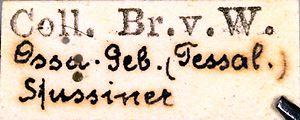 Coll. Br. v. W.
Ossa-Geb. (Tessal.)
Stussiner